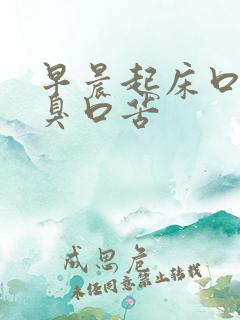 早晨起床口
臭口苦
成思危
未经同意禁止转载